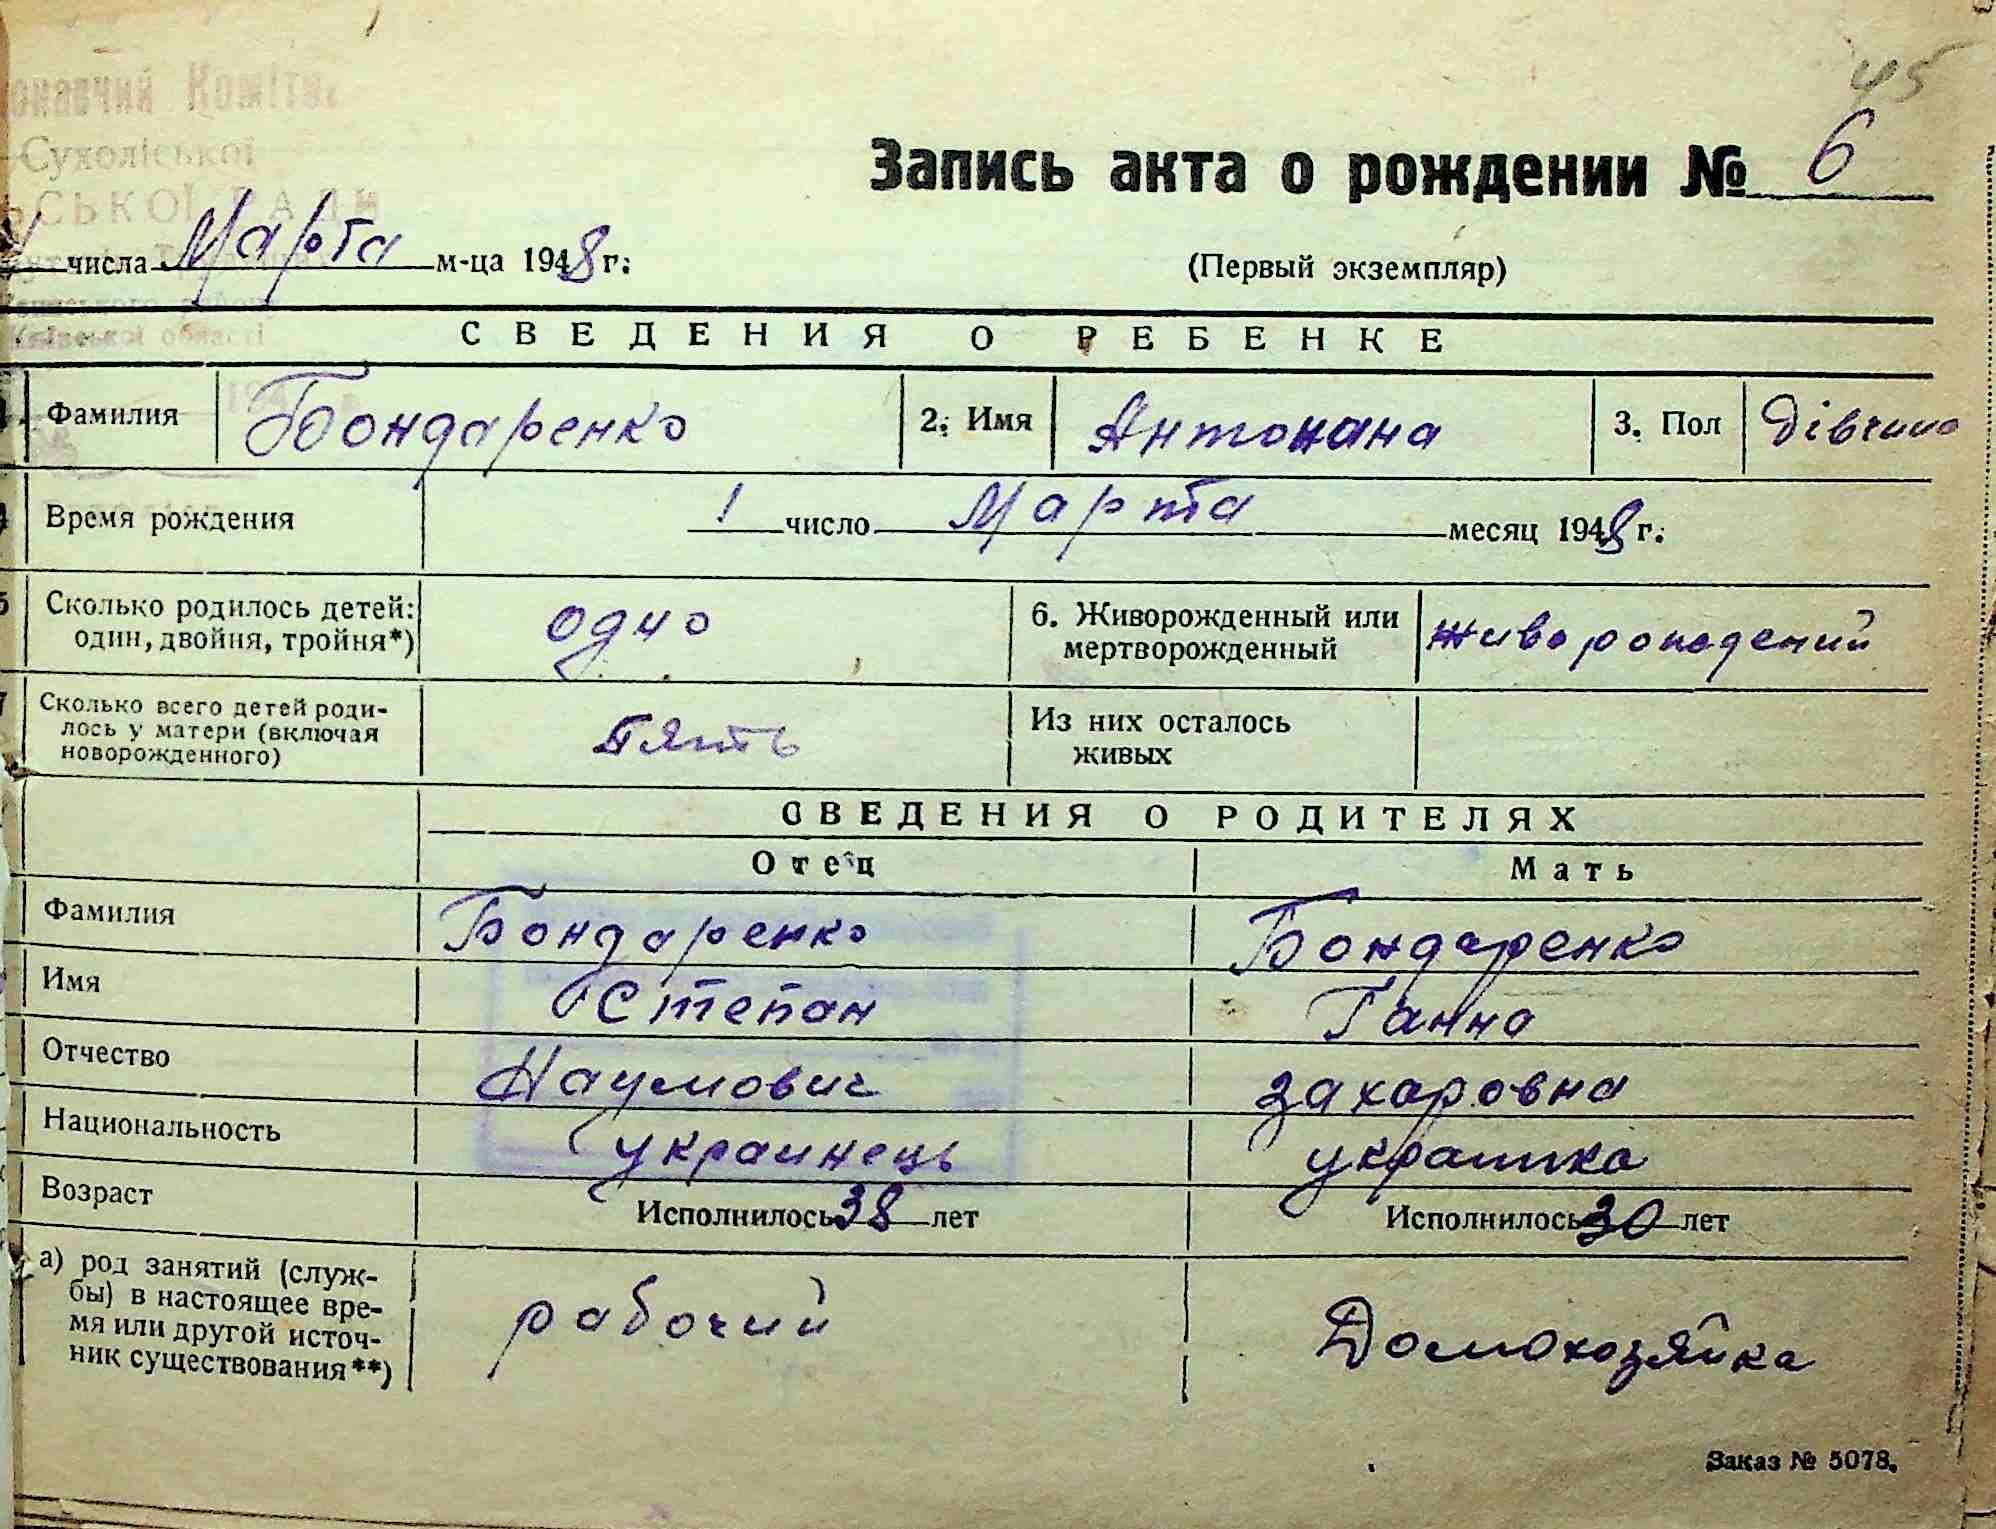 45
Комітет
Сухоліської
СЬКОЇ РАДИ
Запись акта о рождении № 6
числа Марта м-ца 1948 г.
(Первый экземпляр)
області
СВЕДЕНИЯ О РЕБЕНКЕ
Фамилия Бондаренко 2. Имя Антонана 3. Пол Дівчина
Время рождения 1 число Марта месяц 1948 г.
5 Сколько родилось детей: один, двойня, тройня*) одно 6. Живорожденный или мертворожденный живорожденний
7 Сколько всего детей роди-
лось у матери (включая
новорожденного) Пять Из них осталось
живых
СВЕДЕНИЯ О РОДИТЕЛЯХ
Отец Мать
Фамилия Бондаренко Бондаренко
Имя Степан Ганна
Отчество Наумович Захаровна
Национальность украинець украинка
Возраст Исполнилось 38 лет Исполнилось 30 лет
а) род занятий (служ-
бы) в настоящее вре-
мя или другой источ-
ник существования**) рабочий Домохозяйка
Заказ № 5078.